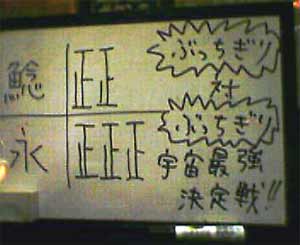 鯰 正正
永 正正正
ぶっちぎり
対
ぶっちぎり
宇宙最強
決定戦!!